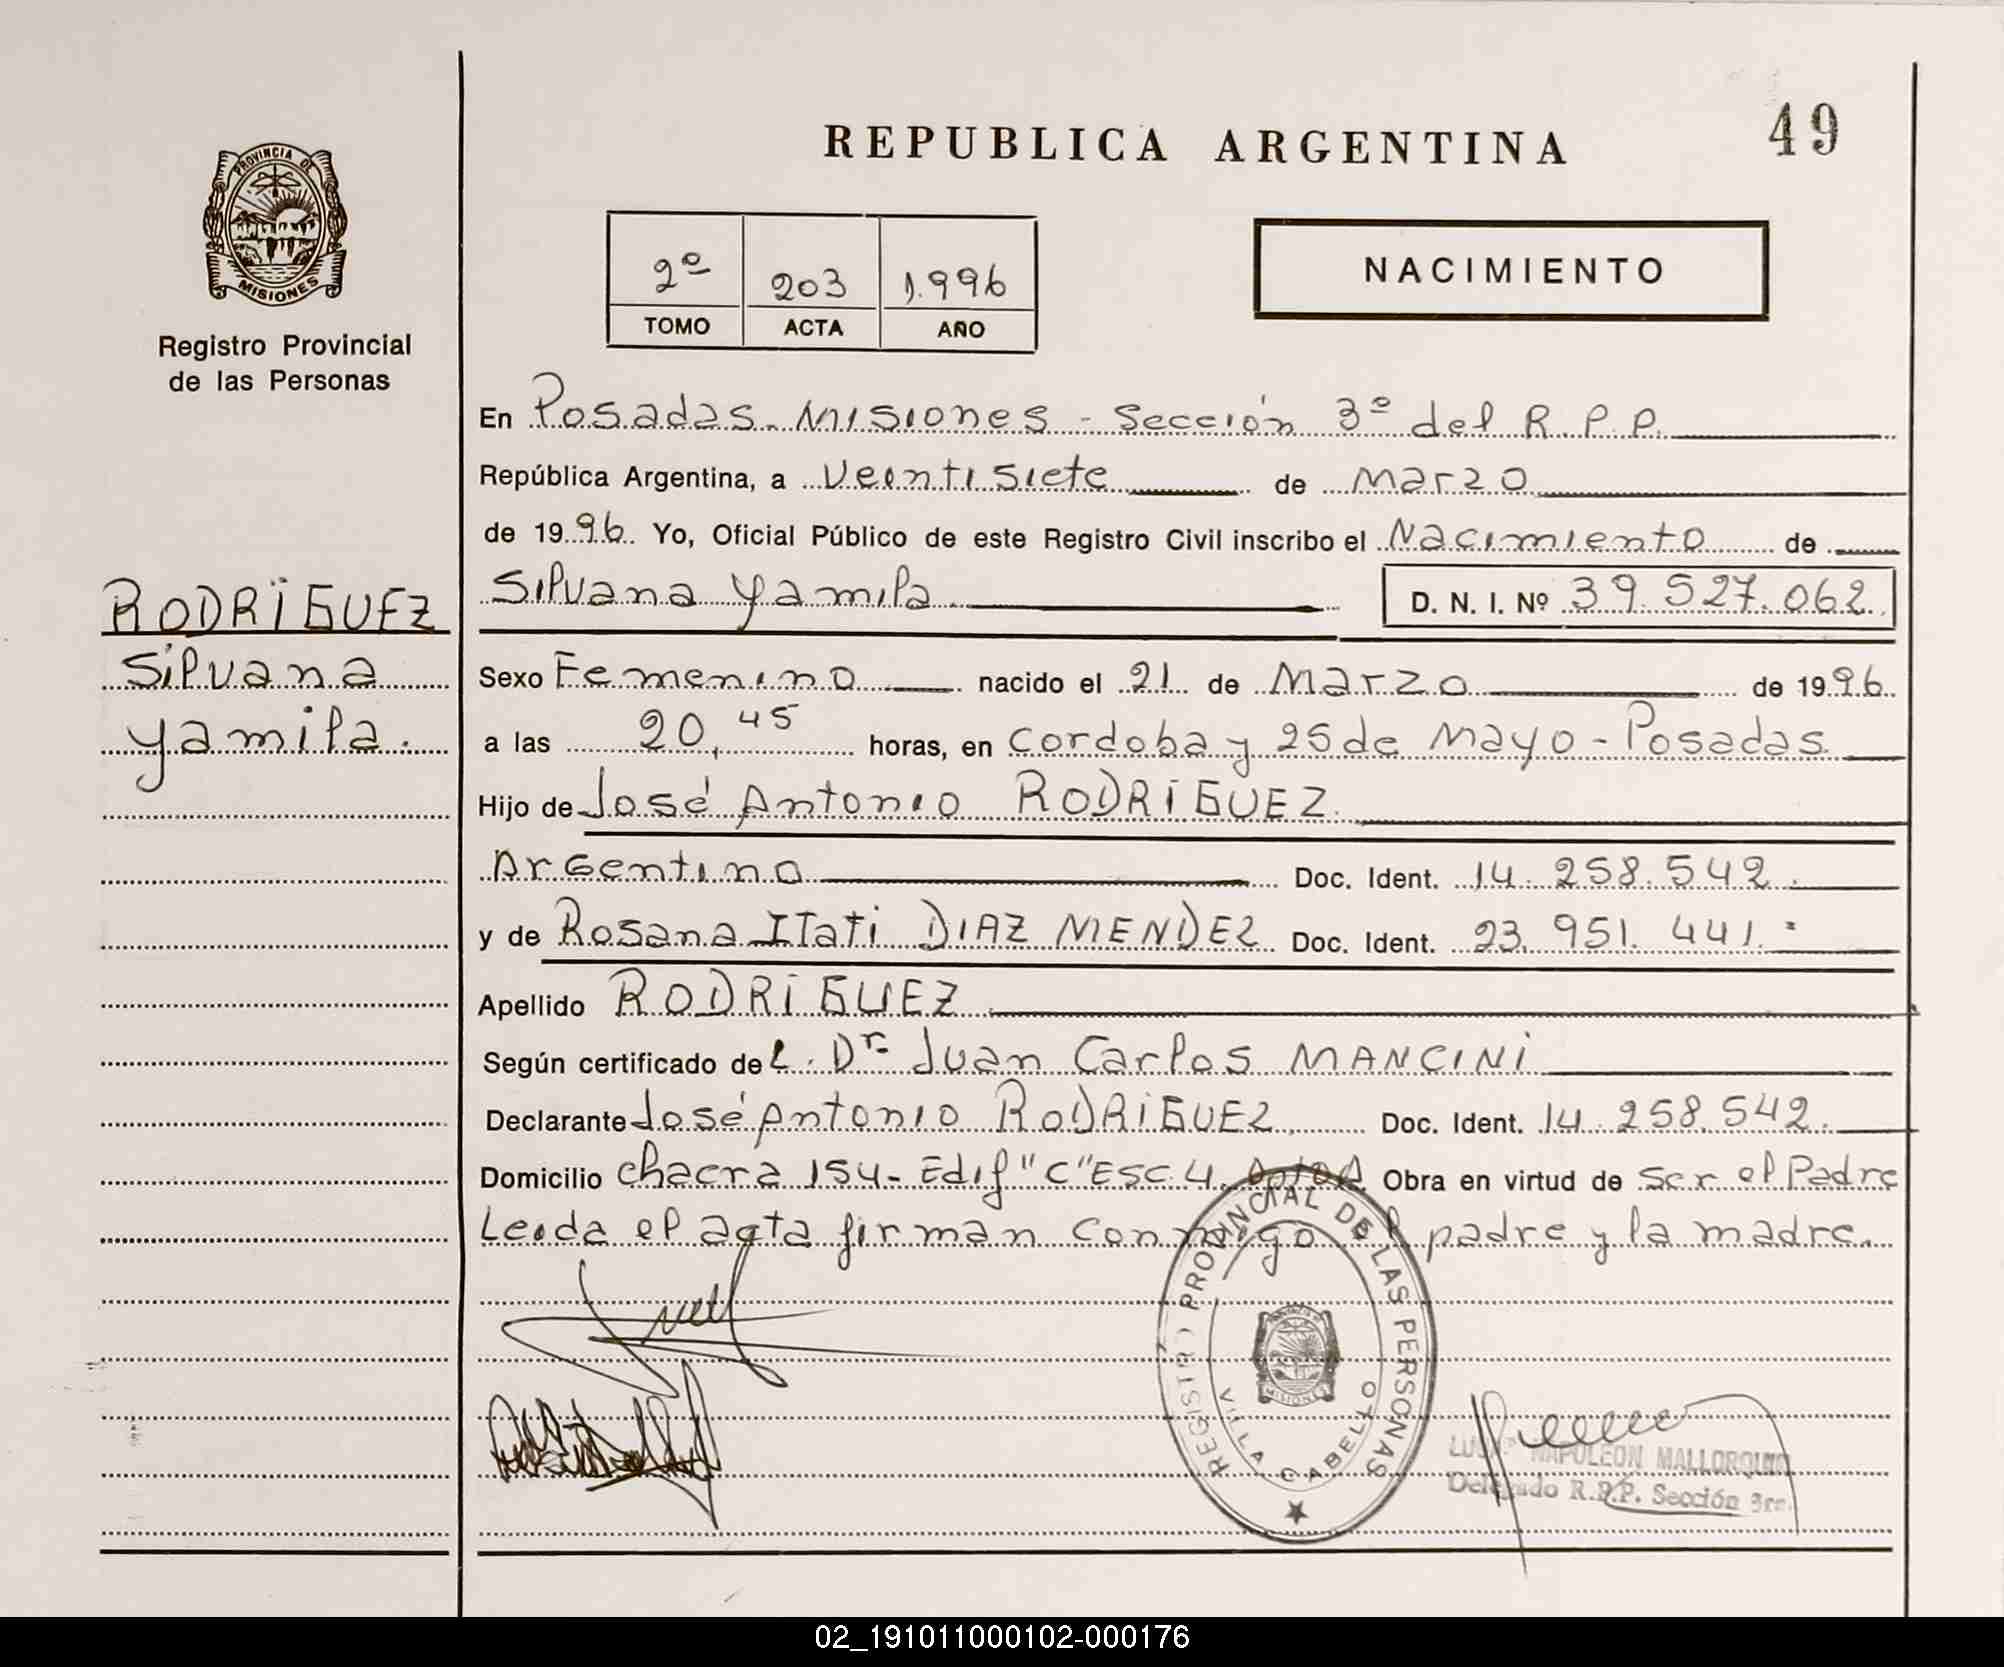 REPUBLICA ARGENTINA
49
PROVINCIA DE
MISIONES
Registro Provincial
de las Personas
2º 203 1.996
TOMO ACTA AÑO
NACIMIENTO
En Posadas. Misiones - Sección 3º del R.P.P.
República Argentina, a Veintisiete de Marzo
de 1996. Yo, Oficial Público de este Registro Civil inscribo el Nacimiento de
Silvana Yamila D. N. I. Nº 39.527.062.
RODRÍGUEZ
Silvana
Yamila.
Sexo Femenino nacido el 21 de Marzo de 1996.
a las 20,45 horas, en Cordoba y 25 de Mayo - Posadas.
Hijo de José Antonio RODRIGUEZ.
Argentino Doc. Ident. 14.258.542.
y de Rosana Itati DIAZ MENDEZ Doc. Ident. 23.951.441.=
Apellido RODRIGUEZ
Según certificado del. Dr. Juan Carlos MANCINI
Declarante José Antonio RODRIGUEZ. Doc. Ident. 14.258.542.
Domicilio Chacra 154- Edif "C" Esc. 4. Obra en virtud de ser el Padre
Leida el acta firman conmigo el padre y la madre.
REGISTRO PROVINCIAL DE LAS PERSONAS
MISIONES
VILLA CABELLO
NAPOLEON MALLORQUIN
Delegado R.P.P. Sección 3ra.
02_191011000102-000176